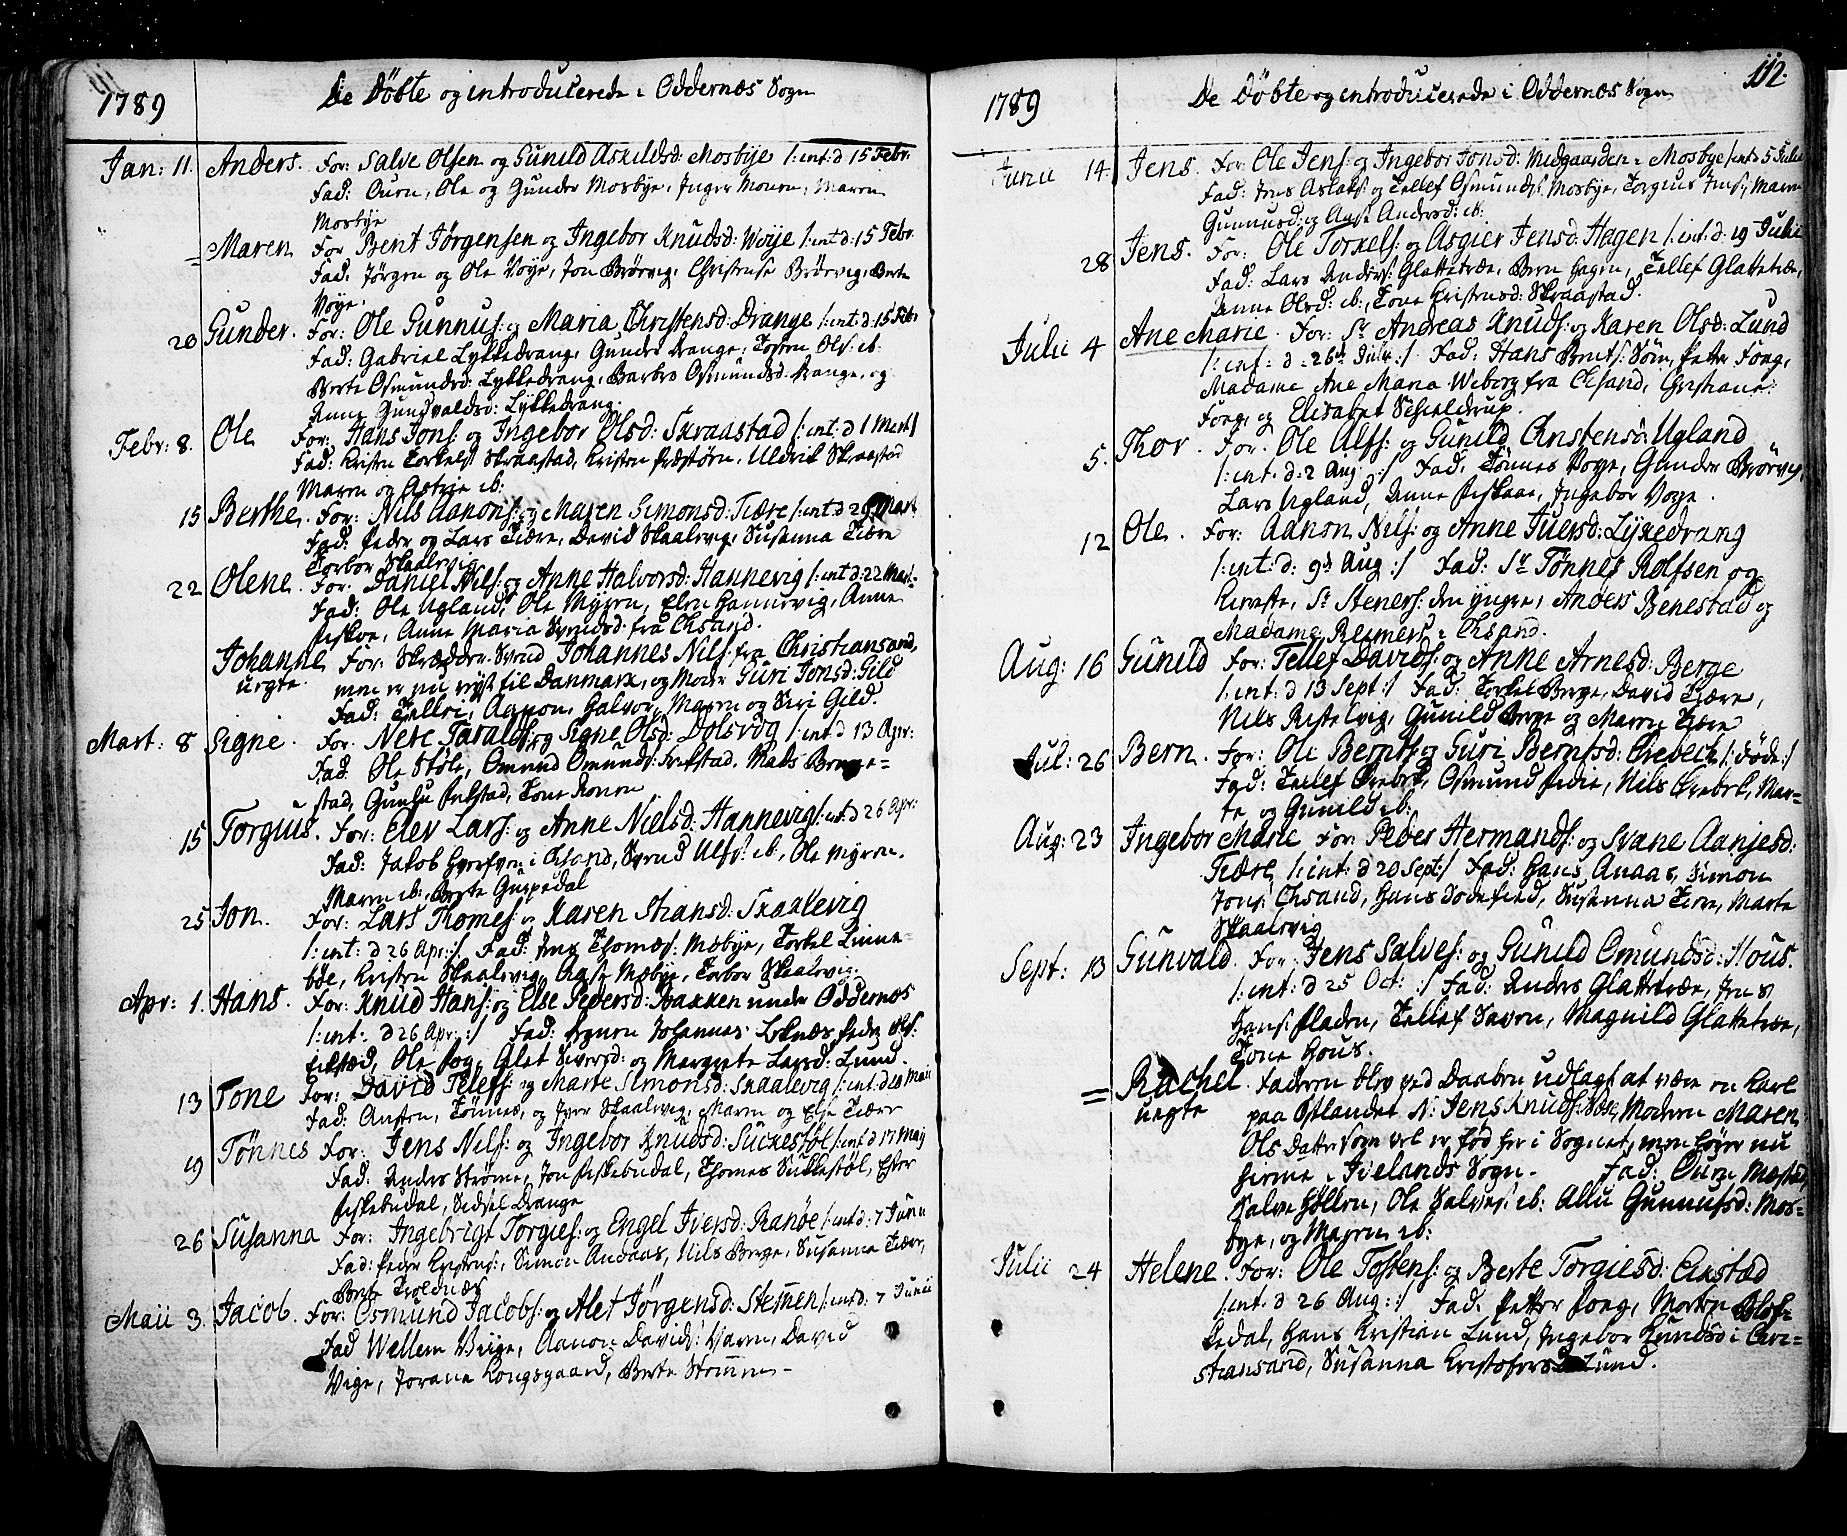 1789 De Döbte og introducerede i Oddernæs Sogn
Jan: 11. Anders. For: Salve Olsen og Gunild Askildsd: Mosbye /: int: d 15 Febr:
Fad: Ouen, Ole og Gunder Mosbye, Inger Mouen, Maren
Mosbye
= Maren For Bent Jørgensen og Ingebor Knudsd: Woye /: int d: 15 Febr.
Fad: Jørgen og Ole Voye, Jon Brørvig, Christense Brørvig, Berte
Voye.
20 Gunder. For: Ole Gunnus: og Maria Christensd: Drange /: int: d: 15 Febr
Fad: Gabriel Lykkedrang, Gunder Drange, Tosten Ols: ib.
Berte Osmundsd: Lykkedrang, Barbro Osmundsd: Drange, og
Anne Gundvaldsd: Lykkedrang.
Febr: 8. Ole For: Hans Jons: og Ingebor Olsd: Skraastad /: int: d 1 Mart /
Fad: Kristen Torkels: Skraastad, Kristen Præstøen, Uldrik Skraastad
Maren og Astrie ib:
15 Berthe. For: Nils Aanons: og Maren Simonsd: Tiære /: int d 29 Mart
Fad: Peder og Lars Tiære, David Skaalevig, Susanna Tiære
Torbor Skaalevig
22 Olene. For: Daniel Nils: og Anne Halvorsd: Hannevig /: int d: 22 Mart:
Fad: Ole Ugland, Ole Myren, Elen Hannevig, Anne
Fiskaae, Anne Maria Svendsd: fra Chsand.
Johanne For: Skrædder Svend Johannes Nils: fra Christiansand,
uegte. men er nu reyst til Danmark, og Moder Guri Jonsd: Gild
Fad: Tellef, Aanon, Halvor, Maren og Siri Gild.
Mart: 8 Signe. For: Nere Taralds: og Signe Olsd: Dolsvog /: int: d 13 Apr:
Fad: Ole Støle, Omund Omunds: Frikstad, Mads Brunge=
stad, Gunlu Frikstad, Tone Ronen
15 Torgius. For: Elev Lars: og Anne Nielsd: Hannevig /: int: d 26 Apr:
Fad: Jakob i Chsand, Svend Alfs: ib., Ole Myren.
Maren ib: Berte Guspedal
25 Jon. For: Lars Thomes: og Karen Stiansd: Skaalevig
/: int: d 26 Apr: :/. Fad: Jens Thomæs: Mæbye, Torkel Linne=
bøe, Kristen Skaalevig, Aase Mæbye, Torbor Skaalevig.
Apr: 1. Hans. For: Knud Hans: og Else Pedersd: Bakken under Oddernæs
/: int: d 26 Apr: :/ Fad: Johannes Eknæs, Peder Ols:
Eikstæd, Ole Fog, Alet Siversd: og Margrete Larsd: Lund.
13 Tone For: David Telefs: og Marte Simonsd: Skaalevig /: int: d 20 Maii
Fad: Austen, Tønnes, og Iver Skaalevig, Maren og Else Tiære
19 Tønnes For: Jens Nils: og Ingebor Knudsd: Suckestøl /: int d 17 Maij
Fad: Anders Strøme, Jon Fiskebudal, Thomes Sukkestøl, Ester
Fiskebudal, Sidsel Drange
26 Susanna For: Ingebrigt Torgies: og Engel Iversd: Ranøe /: int d: 7 Junii
Fad: Peder Kristens:, Simon Andaas, Nils Berge, Susanna Tiære,
Berte Troldnæs
Maii 3. Jacob. For: Osmund Jacobs: og Alet Jørgensd: Stemen /: int d: 7 Junii
Fad Wellem Viige, Aanon Davids: Varen, David
Vige, Jorane Kongsgaard, Berte Stemmen –
1789 De Döbte og introducerede i Oddernæs Sogn 112.
Junii 14. Jens. For: Ole Jens: og Ingebor Jonsd: Midgaarden i Mosbye /: int d 5 Julii
Fad: Jens Aslaks: og Tellef Osmunds: Mosbye, Torgius Jens:, Maren
Gunnusd: og Aase Andersd: ib:
28 Jens. For: Ole Torkels: og Asgier Jensd: Hagen /: int: d: 19 Julii
Fad: Lars Anders: Glattetræ, Bern Hagen, Tellef Glattetræ,
Anne Olsd: ib:, Tone Kristensd: Skraastad.
Julii 4 Ane Marie. For: Sr Andreas Knuds: og Karen Olsd: Lund
/: int: d: 26de Julii :/ Fad: Hans Bents: Søm, Petter Fong,
Madame Ane Maria Weborg fra Chsand, Christiane
Fong, og Elisabet Schieldrup.
5. Thor. For: Ole Alfs: og Gunild Cristensd: Ugland
/: int: d: 2 Aug :/ Fad: Tönnes Voye, Gunder Brørvig,
Lars Ugland, Anne Fiskaae, Ingebor Voye.
12 Ole. For: Aanon Nils: og Anne Juersd: Lykedrang
/: int: d: 9de Aug :/ Fad: Sr Tønnes Rolfsen og
Kiereste, Sr Steners: den yngre, Anders Benestad og
Madame Reimers i Chsand.
Aug: 16 Gunild For: Tellef Davids: og Anne Arnesd: Berge
/: int: d 13 Sept :/ Fad: Torkel Berge, David Tiære,
Nils Refstelvig, Gunild Berge og Maren Tiære
Jul: 26 Bern. For: Ole Bernts: og Guri Berntsd: Örebeck /: Föde :/
Fad: Tellef Örebek, Osmund Pedie, Nils Örebek, Mar=
te og Gunild ib:
Aug: 23 Ingebor Marie For: Peder Hermands: og Svane Aanjesd:
Tiære, /: int: d 20 Sept :/ Fad: Hans Anaas, Simon
Jons: Chsand, Hans Sodefied, Susanna Tiære, Marte
Skaalevig
Sept: 13 Gunvald. For: Jens Salves: og Gunild Omundsd: Hous.
/: int: d 25 Oct: :/ Fad: Anders Glattetræe, Jens
Hans: Fladen, Tellef Savon, Magnild Glattetræe,
Tone Hous.
= Rachel. Faderen blev ved Daaben udlagt at være en Karl
uegte paa Østlandet N: Jens Knuds: Moderen Maren
Ols datter som vel er fød her i Sognet, men hører nu
hieme i Ivelands Sogn. Fad: Ouen Mæstad,
Salve Hellen, Ole Salves: ib: Allu Gunnufsd: Mos=
bye, og Maren ib:
Julii 24 Helene. For: Ole Tostens: og Berte Torgiesd: Eikstad
/: int. d 26 Aug: :/ Fad: Petter Fong, Morten Blof=
kedal, Hans Kristian Lund, Ingebor Knudsd: i Chri=
stiansand, Susanna Kristofersd: Lund.